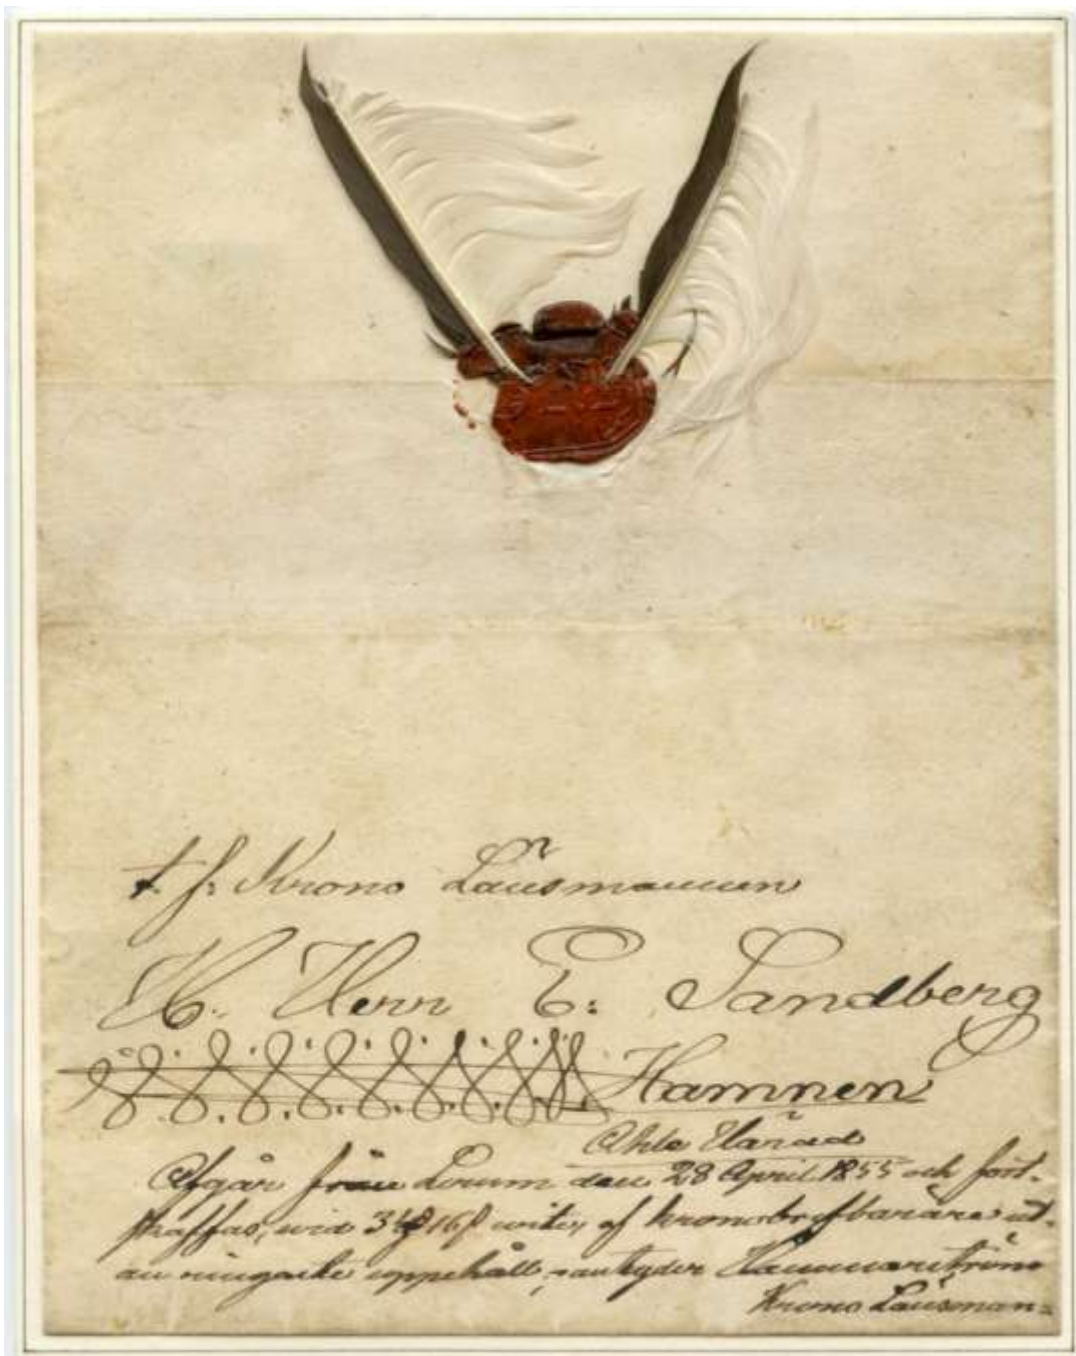 t. f. Krono Länsmannen
H. Herr E: Sandberg
Hamnen
Ahle Härad
Afgår från Lerum den 28 April 1855 och fort-
skaffas, wid 3 16 wite, af kronobrefbärare ut-
an ringaste uppehåll, antyder Hammarström
Krono Länsman